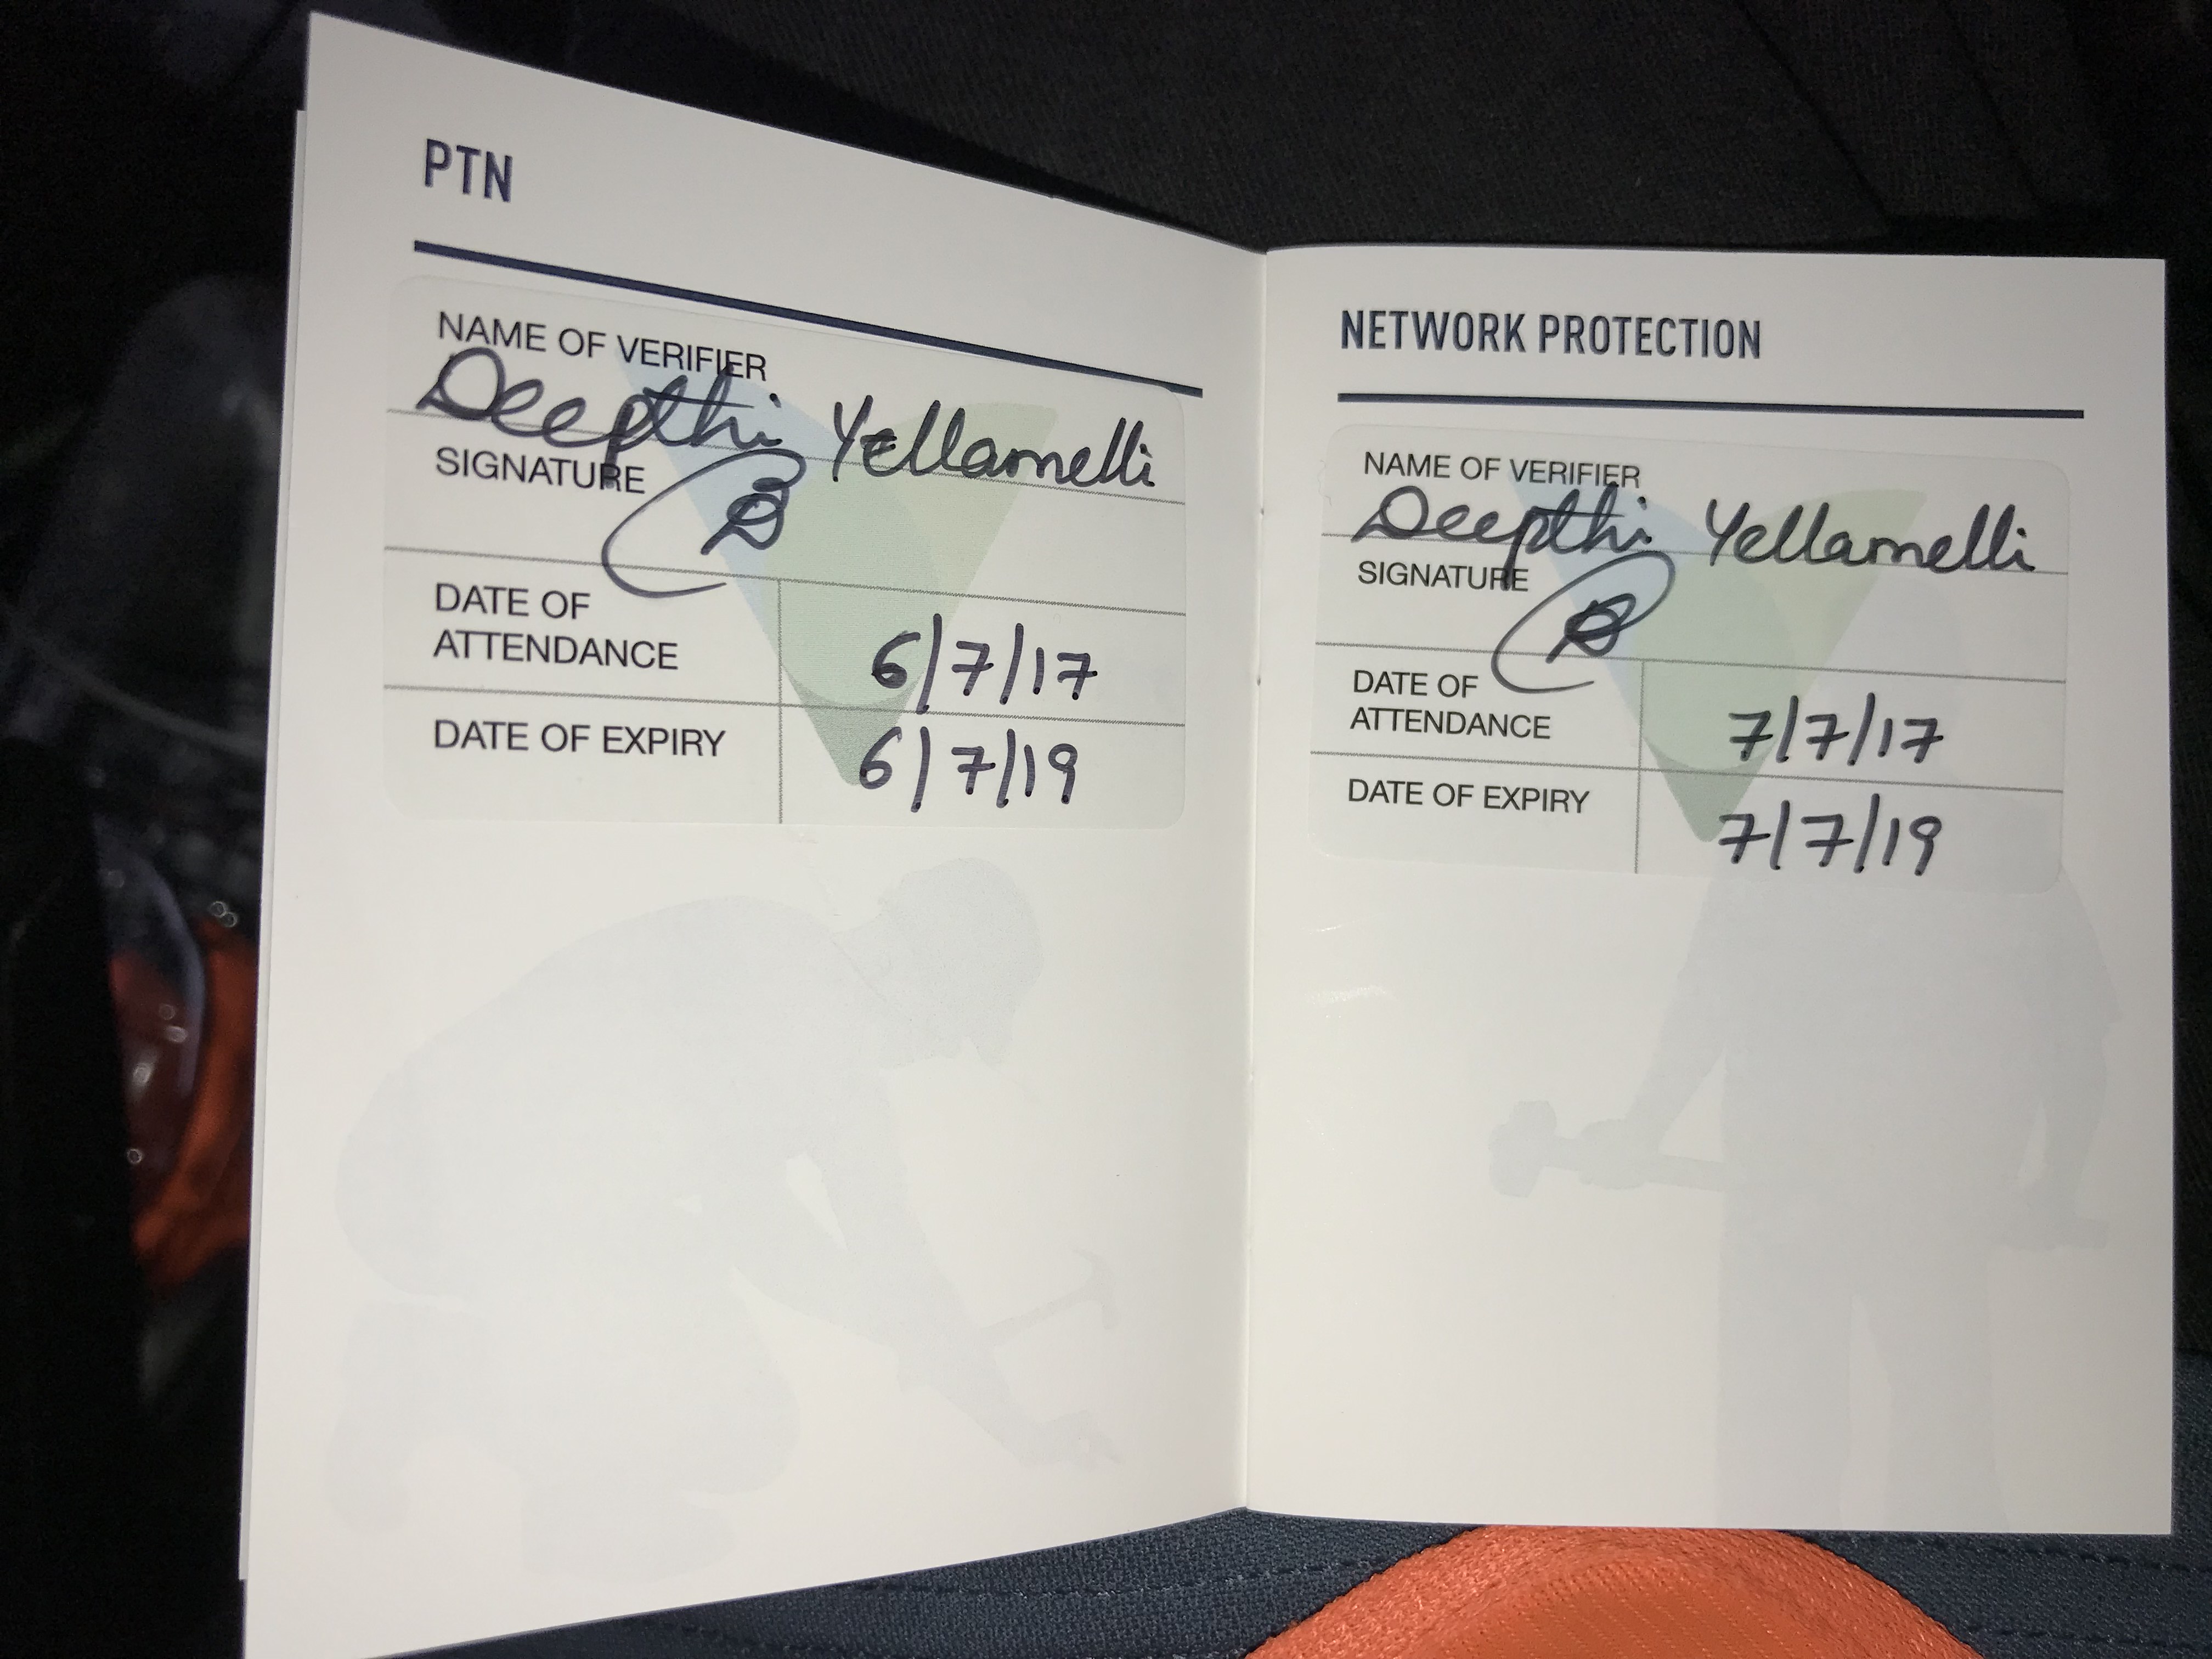 PTN
NAME OF VERIFIER
Deepthi Yellamelli
SIGNATURE
DATE OF
ATTENDANCE
6/7/17
DATE OF EXPIRY
6/7/19
NETWORK PROTECTION
NAME OF VERIFIER
Deepthi Yellamelli
SIGNATURE
DATE OF
ATTENDANCE
7/7/17
DATE OF EXPIRY
7/7/19